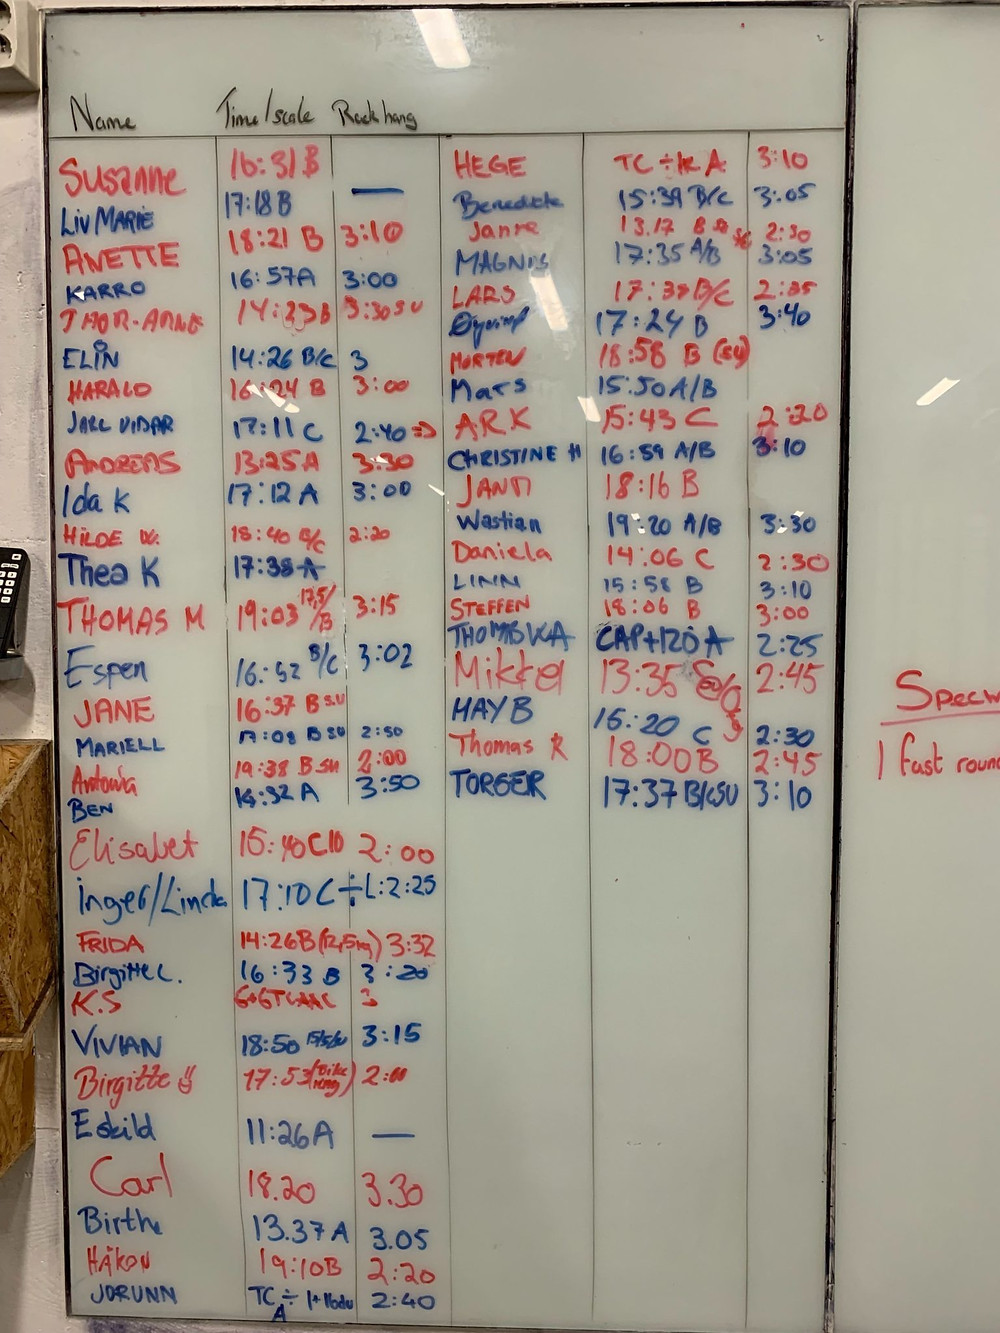 Name Time/scale Rack hang
Susanne 16:31 B
LIV MARIE 17:18 B —
ANETTE 18:21 B 3:10
KARRO 16:57 A 3:00
THOR-ARNE 14:23 B 3:30 SU
ELIN 14:26 B/C 3
HARALD 16:24 B 3:00
JARL VIDAR 17:11 C 2:40 =>
ANDREAS 13:25 A 3:30
Ida K 17:12 A 3:00
HILDE W. 18:40 B/C 2:20
Thea K 17:38 A
THOMAS M 19:03 17,5/B 3:15
Espen 16:52 B/C 3:02
JANE 16:37 B SU
MARIELL 17:08 B SU 2:50
Antonia 19:38 B SU 2:00
BEN 16:32 A 3:50
Elisabet 15:40 C 2:00
Inger/Linda 17:10 C ÷ L:2:25
FRIDA 14:26 B (12,5kg) 3:32
Birgitte L. 16:33 B 3:20
K.S 3
VIVIAN 18:50 3:15
Birgitte 17:53 (Bike 2:00
Eskild 11:26 A —
Carl 18.20 3.30
Birthe 13.37 A 3.05
HÅKON 19:10 B 2:20
JORUNN TC ÷ A 2:40
HEGE TC ÷ 1R A 3:10
Benedicte 15:39 B/C 3:05
Janne 13.17 B 2:30
MAGNUS 17:35 A/B 3:05
LARS B/C
Øyvind 17:24 B 3:40
MORTEN 18:58 B (SU)
Mats 15:50 A/B
ARK 15:43 C 2:20
CHRISTINE H 16:59 A/B 3:10
18:16 B
Wastian 19:20 A/B 3:30
Daniela 14:06 C 2:30
LINN 15:58 B 3:10
STEFFEN 18:06 B 3:00
CAP+120 A 2:25
Mikkel 13:35 2:45
HAY B C 2:30
Thomas R 18:00 B 2:45
TORGER 17:37 B/C SU 3:10
1 fast